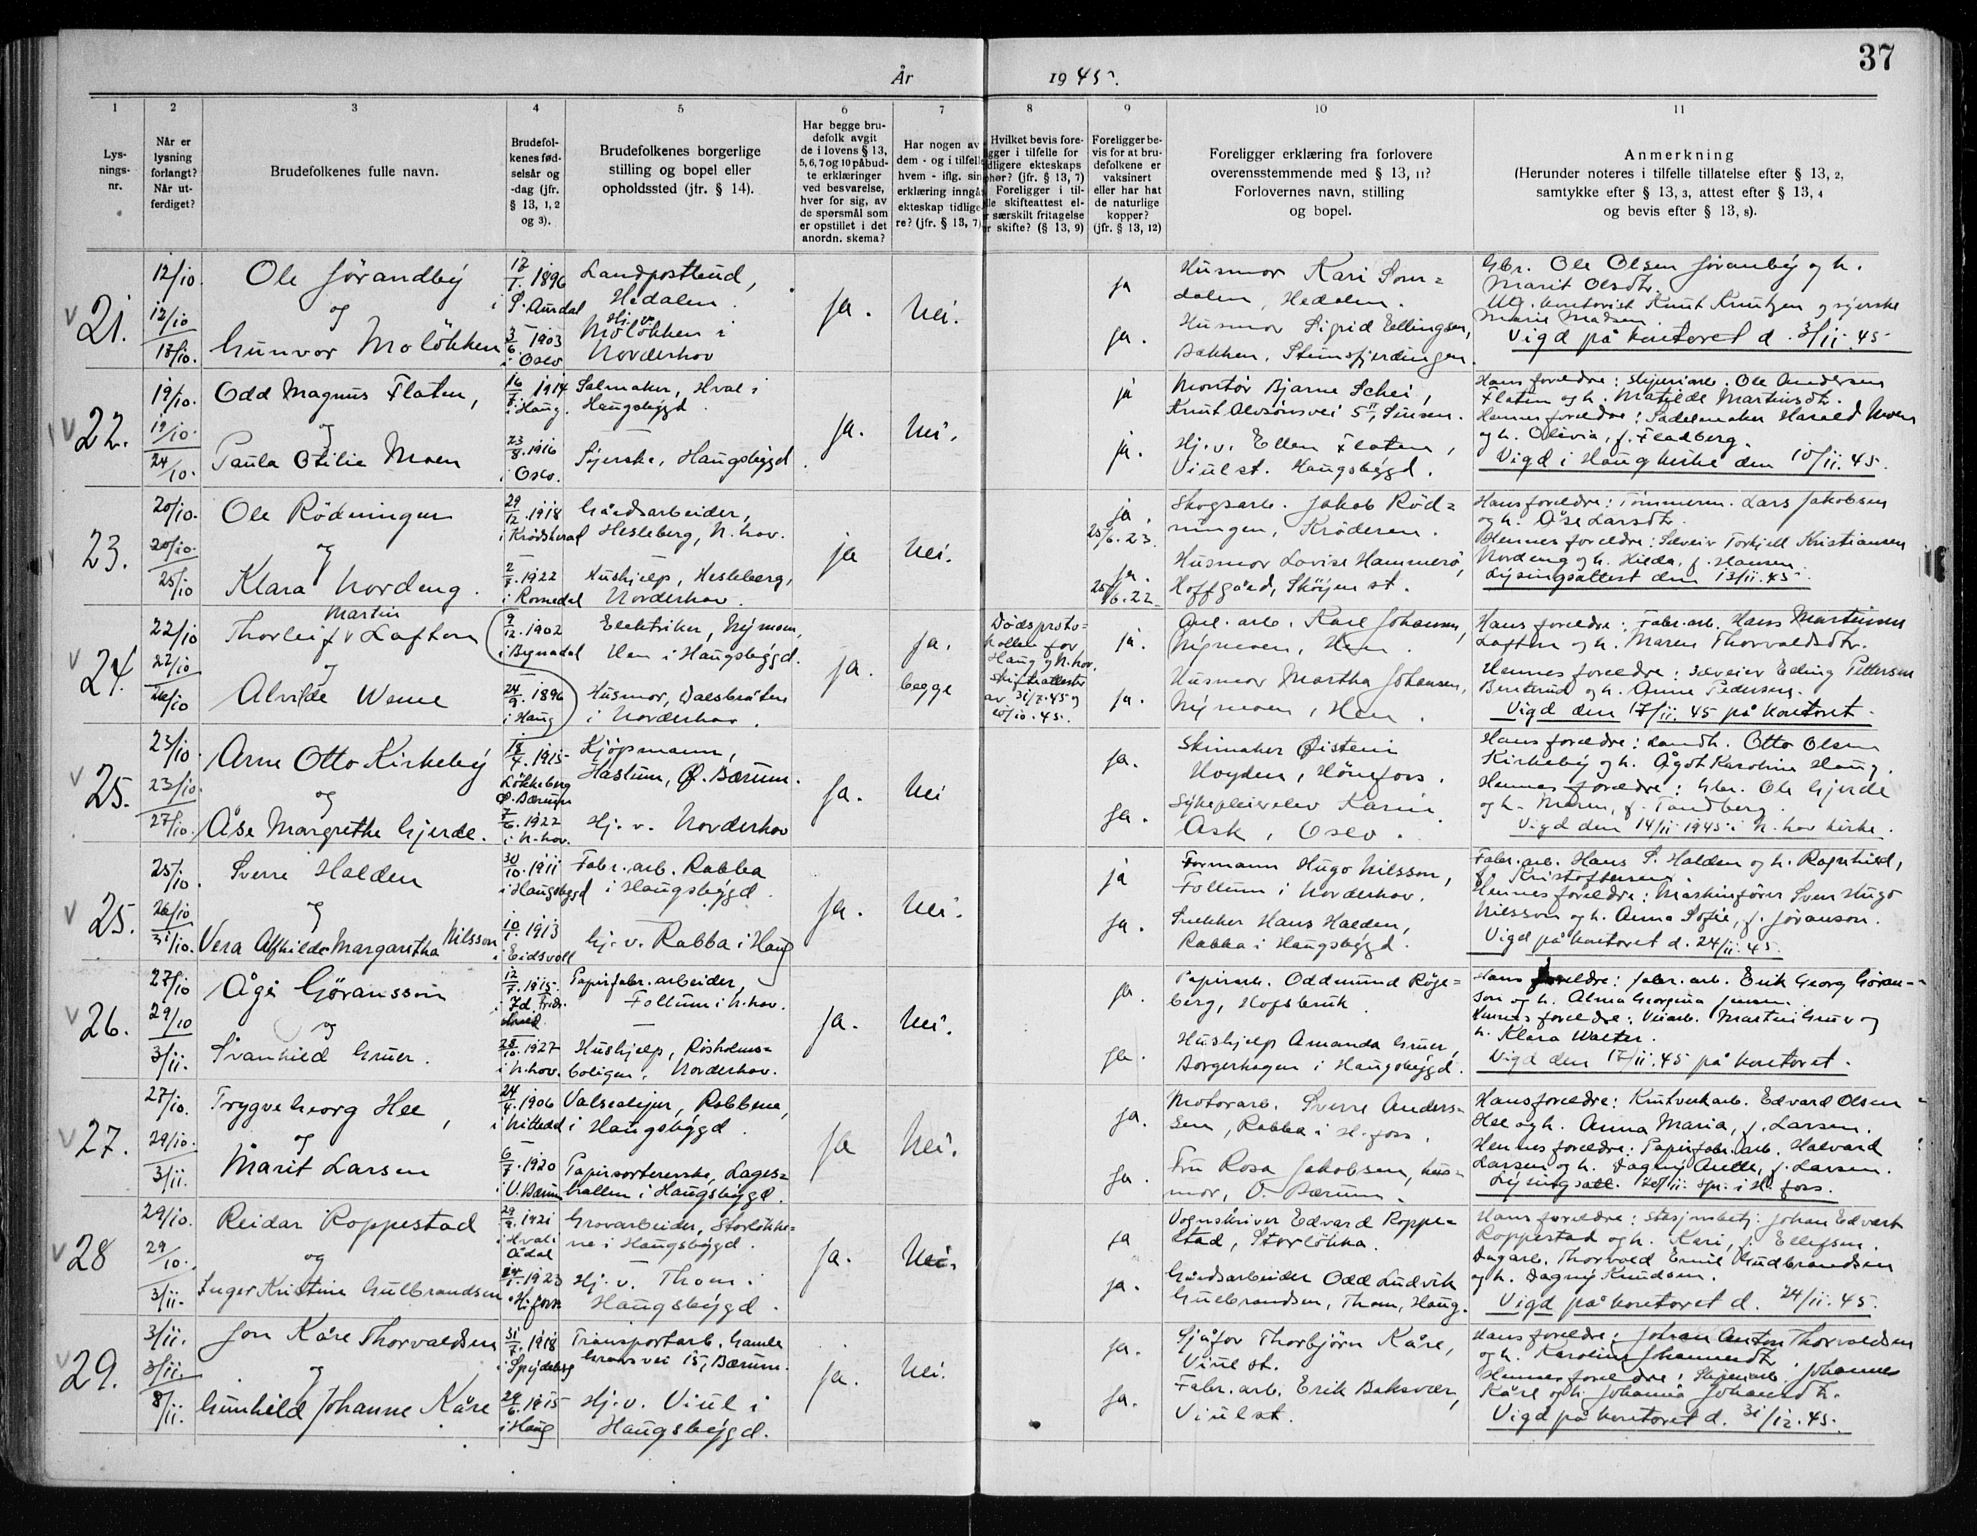 37
År
1945.
1
2
3
4
5
6
7
8
9
10
11
Lys-
nings-
nr.
Når er
lysning
forlangt?
Når ut-
ferdiget?
Brudefolkenes fulle navn.
Brudefol-
kenes fød-
selsår og
-dag (jfr.
§ 13, 1, 2
og 3).
Brudefolkenes borgerlige
stilling og bopel eller
opholdssted (jfr. § 14).
Har begge bru-
defolk avgit
de i lovens § 13,
5, 6, 7 og 10 påbud-
te erklæringer
ved besvarelse,
hver for sig, av
de spørsmål som
er opstillet i det
anordn. skema?
Har nogen av
dem - og i tilfelle
hvem - iflg. sin
erklæring inngå
ekteskap tidlige-
re? (jfr. § 13, 7)
Hvilket bevis fore-
ligger i tilfelle for
tidligere ekteskaps
ophør? (jfr. § 13, 7)
Foreligger i til-
felle skifteattest el-
særskilt fritagelse
skifte? (§ 13, 9)
Foreligger be-
vis for at bru-
defolkene er
vaksinert
eller har hat
de naturlige
kopper?
(jfr. § 13, 12)
Foreligger erklæring fra forlovere
overensstemmende med § 13, 11?
Forlovernes navn, stilling
og bopel.
Anmerkning
(Herunder noteres i tilfelle tillatelse efter § 13, 2,
samtykke efter § 13, 3, attest efter § 13, 4
og bevis efter § 13, 8).
21.
12/10.
12/10
17/10.
Ole Jörandby
og
Gunvor Molökken
1896
i S. Aurdal
1903
i Oslo
Landpostbud,
Hedalen.
Hj. v.
Molökken i
Norderhov
Ja.
Nei.
ja
ja.
Husmor Kari Som=
dalen, Hedalen.
Husmor Sigrid Ellingsen,
Bakken, Steinsfjerdingen.
Gbr. Ole Olsen Joranby og h.
Marit Olsdtr.
Knut Knutzen og syerske
Marie Madsen
Vigd på kontoret d. 3/11.45
22.
19/10.
19/10.
24/10.
Odd Magnus Flaten,
og
Paula Otilie Moen
16/8 1914
i Haug.
23/8.1916
i Oslo.
Salmaker, Hval i
Haugsbygd.
Syerske, Haugsbygd.
Ja.
Nei.
ja
ja.
Montør Bjarne Schei,
Knut Alvsönsvei 5 II, Sinsen.
Hj. v. Ellen Flaten,
Viul st. Haugsbygd.
Hans foreldre: sliperiarb. Ole Andersen
Flaten og h. Matilde Martinsdtr.
Hennes foreldre: Sadelmaker Harald Moen
og h. Olivia, f. Fladberg.
Vigd i Haug kirke den 10/11.45.
23.
20/10.
20/10.
25/10
Ole Rödningen
og
Klara Nordeng.
29/12.1918
i Krödsherad
2/7.1922
i Romedal
Gårdsarbeider,
Hesleberg, N. hov.
Hushjelp, Hesleberg,
Norderhov.
ja
Nei.
ja.
25/6.23.
ja.
25/6.22.
Skogsarb. Jakob Röd=
ningen, Kröderen.
Husmor Lovise Hammersö,
Hoffgård, Sköyen st.
Hans foreldre: Tömmerm. Lars Jakobsen
og h. Åse Larsdtr.
Hennes foreldre: Torkjell Kristiansen
Nordeng og h. Hilda, f. Hansen.
Lysingsattest den 13/11.45.
24.
22/10
22/10
26/10
Martin
Thorleif Laften
og
Alvilde Weme
9/12.1902
i Bymadal
24/9.1896
i Haug
Elektriker, Nymoen,
Hen i Haugsbygd.
Husmor, Dalsbråten
i Norderhov.
Ja.
Ja.
begge
Dödsproto=
kollen for
Haug og N. hov.
skifteattester
av 31/7.45 og
20/10.45.
ja.
ja.
Anl. arb. Karl Johansen,
Nymoen, Hen.
Husmor Martha Johansen,
Nymoen, Hen.
Hans foreldre: Fabr. arb. Hans Martinsen
Laften og h. Maren Thorvaldsdtr.
Hennes foreldre: Edling Pettersen
Benterud og h. Anne Pedersen.
Vigd den 17/11.45 på kontoret.
25.
23/10.
23/10.
27/10.
Arne Otto Kirkeby
og
Åse Margrethe Gjerde.
18/4.1915
Lökkeberg
Ø. Bærum
7/6.1922
i N. hov.
Kjöpmann,
Haslum, Ø. Bærum.
Hj. v. Norderhov
Ja.
Nei
Ja.
Ja.
Skimaker Øistein
Høyden, Hönefoss.
Sykepleieelev Karin
Ask, Oslo.
Hans foreldre: landh. Otto Olsen
Kirkeby og h. Ågot Karoline Haug.
Hennes foreldre: Gbr. Ole Gjerde
og h. Maren, f. Tandberg.
Vigd den 14/11 1945 i N. hov kirke.
25.
25/10.
26/10
31/10.
Sverre Halden
og
Vera Alfhilde Margaretha Nilsson
30/10.1911
i Haugsbygd
10/1.1913
i Eidsvoll
Fabr. arb. Rabba
i Haugsbygd.
Hj. v. Rabba i Haug
Ja.
Nei.
ja
Ja.
Formann Hugo Nilsson,
Follum i Norderhov.
Snekker Hans Halden,
Rabba i Haugsbygd.
Fabr. arb. Hans S. Halden og h. Ragnhild,
f. Kristoffersen.
Hennes foreldre: Maskinförer Sven Hugo
Nilsson og h. Anna Sofie, f. Joranson.
Vigd på kontoret d. 24/11.45.
26.
27/10
29/10
3/11.
Åge Göransson
og
Svanhild Gruer.
12/7.1915.
25/10.1927
i N. hov.
Papirfabr. arbeider,
Follum i N. hov.
Hushjelp, Risholms=
boligen, Norderhov.
Ja.
Nei.
ja.
Ja.
Papirarb. Oddmund Röge=
berg, Hofsbruk
Hushjelp Amanda Gruer,
Borgerhagen i Haugsbygd.
Hans foreldre: fabr. arb. Erik Georg Göran-
son og h. Alma Georgina Jensen.
Hennes foreldre: Veiarb. Martin Gruer og
h. Klara Walter.
Vigd den 17/11.45 på kontoret.
27.
27/10.
29/10.
3/11.
Trygve Georg Hee,
og
Marit Larsen
24/4.1906
i Nittedal
6/7.1920
i V. Bærum
Valseslipper, Rabbene,
i Haugsbygd.
Papirsortererske, Lages=
hallen i Haugsbygd.
Ja
Nei.
Ja.
Ja.
Motorarb. Sverre Anders=
sen, Rabba i H. foss.
Fru Rosa Jakobsen, hus=
mor, V. Bærum.
Hans foreldre: Krutverkarb. Edvard Olsen
Hee og h. Anna Maria, f. Larsen.
Hennes foreldre: Papirfabr. arb. Halvard
Larsen og h. Dagny Anette, f. Larsen.
Lysingsatt. 20/11 spr. i H. foss.
28
29/10.
29/10.
3/11.
Reidar Roppestad
og
Inger Kristine Gulbrandsen
29/9.1921
i Hval i
Ådal
24/1.1923
i H. foss
Grovarbeider, Storlökke=
ne i Haugsbygd.
Hj. v. Thom i
Haugsbygd.
Ja.
Nei.
ja
ja.
Vognskriver Edvard Roppe=
stad, Storlökka.
Gårdsarbeider Odd Ludvik
Gulbrandsen, Thom, Haug.
Hans foreldre: stasjonsbetj. Johan Edvart
Roppestad og h. Kari, f. Ellefsen.
Dagarb. Thorvald Emil Gudbrandsen
og h. Dagny Knudsen.
Vigd på kontoret d. 24/11.45.
29.
3/11.
3/11.
8/11.
Jon Kåre Thorvaldsen
og
Gunhild Johanne Kåre
31/7.1918
i Spydeberg
29/6.1915
i Haug
Transportarb. Gamle
vei 15, Bærum.
Hj. v. Viul i
Haugsbygd.
Ja.
Nei.
Ja.
Ja.
Sjåför Thorbjörn Kåre,
Viul st.
Fabr. arb. Erik Baksvær,
Viul st.
Hans foreldre: Johan Anton Thorvaldsen
og h. Karoline Johannesdtr.
Hennes foreldre: Sliperiarb. Johannes
Kåre og h. Johanna Johansdtr.
Vigd på kontoret d. 31/12.45.